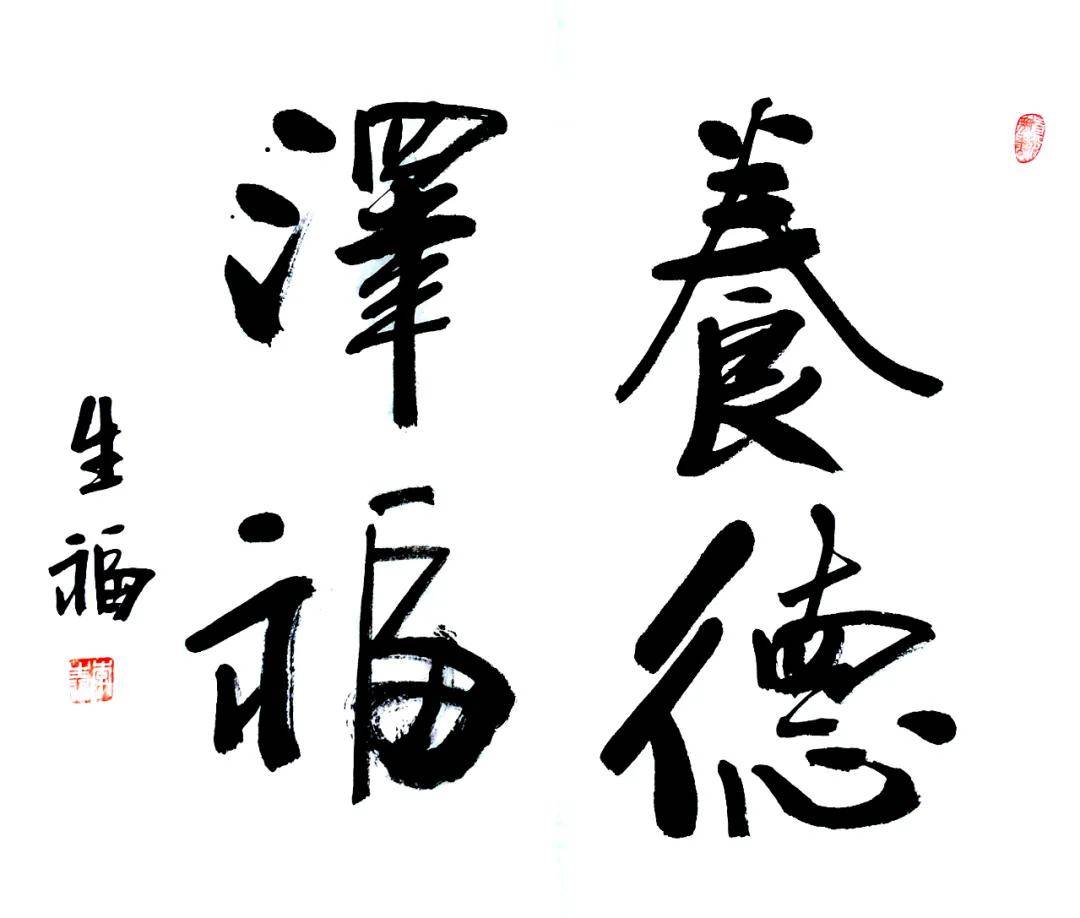 養德
澤福
生福